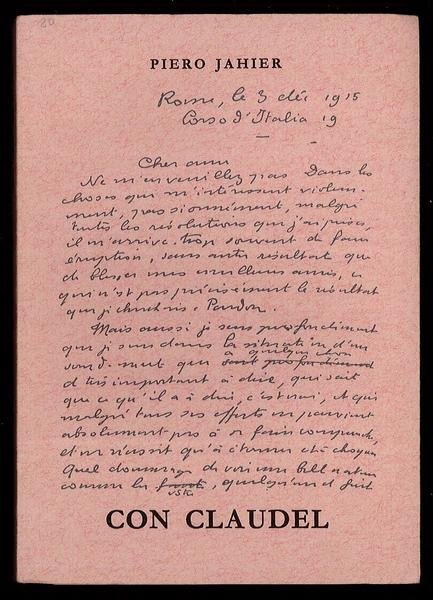 80
PIERO JAHIER
Rome, le 3 déc 1915
Corso d'Italia 19
Cher ami
Ne m'en veuillez pas Dans les
choses qui m'intéressent violem-
ment, passionnément, malgré
toutes les résolutions que j'ai prises,
il m'arrive trop souvent de faire
éruption, sans autre résultat que
de blesser mes meilleurs amis, ce
qui n'est pas précisément le résultat
que je cherchais. Pardon.
Mais aussi je sens profondément
que je suis dans la situation d'un
sourd-muet qui a quelque chose
d très important à dire, qui sait
que ce qu'il a à dire, c'est vrai, et qui
malgré tous ses efforts ne parvient
absolument pas à se faire comprendre,
et ne réussit qu'à étonner et à choquer
Quel dommage de voir une belle nature
comme la vôtre, quelqu'un d fait
CON CLAUDEL